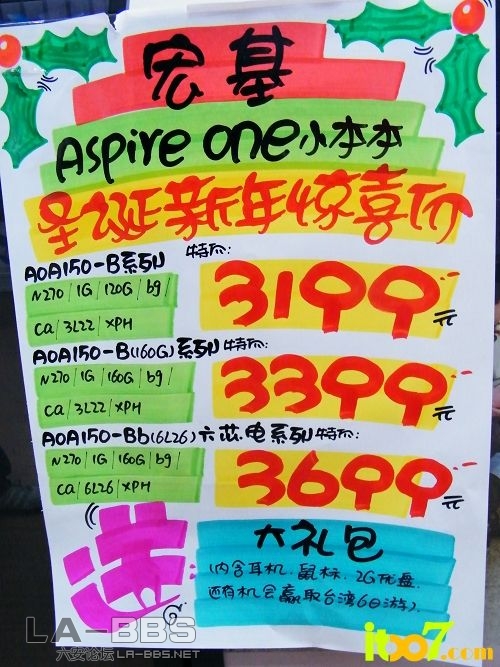 宏基
Aspire one小本本
圣诞新年惊喜价
AOA150-B系列 特价:
N270/1G/120G/bg/
ca/3L22/XPH
3199元
AOA150-B(160G)系列 特价:
N270/1G/160G/bg/
ca/3L22/XPH
3399元
AOA150-Bb(6L26)六芯电系列特价:
N270/1G/160G/bg/
ca/6L26/XPH
3699元
送
大礼包
(内含耳机.鼠标.2G优盘.
还有机会赢取台湾6日游)
LA-BBS
六安论坛LA-BBS.NET
it007.com